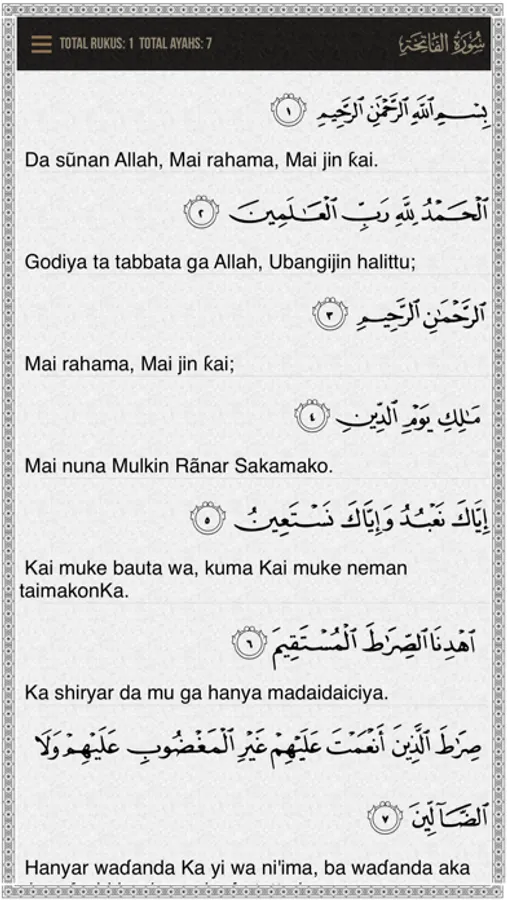 TOTAL RUKUS: 1 TOTAL AYAHS: 7 سُورَةُ الفَاتِحَةِ
بِسْمِ ٱللَّهِ ٱلرَّحْمَٰنِ ٱلرَّحِيمِ ١
Da sũnan Allah, Mai rahama, Mai jin ƙai.
ٱلْحَمْدُ لِلَّهِ رَبِّ ٱلْعَٰلَمِينَ ٢
Godiya ta tabbata ga Allah, Ubangijin halittu;
ٱلرَّحْمَٰنِ ٱلرَّحِيمِ ٣
Mai rahama, Mai jin ƙai;
مَٰلِكِ يَوْمِ ٱلدِّينِ ٤
Mai nuna Mulkin Rãnar Sakamako.
إِيَّاكَ نَعْبُدُ وَإِيَّاكَ نَسْتَعِينُ ٥
Kai muke bauta wa, kuma Kai muke neman
taimakonKa.
ٱهْدِنَا ٱلصِّرَٰطَ ٱلْمُسْتَقِيمَ ٦
Ka shiryar da mu ga hanya madaidaiciya.
صِرَٰطَ ٱلَّذِينَ أَنْعَمْتَ عَلَيْهِمْ غَيْرِ ٱلْمَغْضُوبِ عَلَيْهِمْ وَلَا
ٱلضَّآلِّينَ ٧
Hanyar waɗanda Ka yi wa ni'ima, ba waɗanda aka